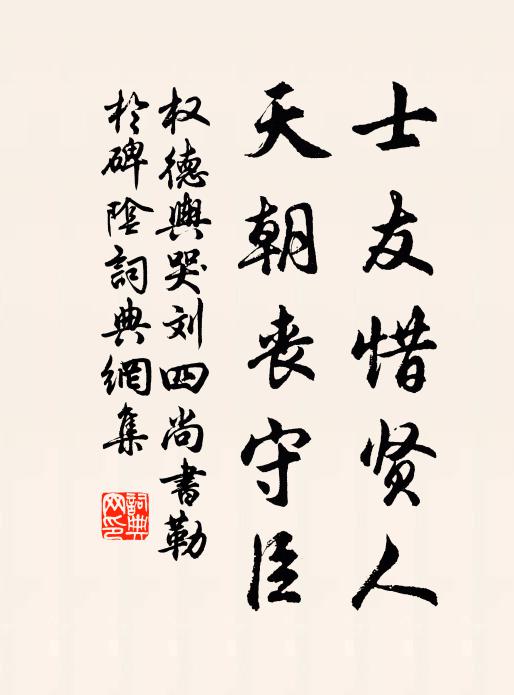 士友惜贤人
天朝丧守臣
权德舆哭刘四尚书勒
於碑陰詞典網集
詞典
网印